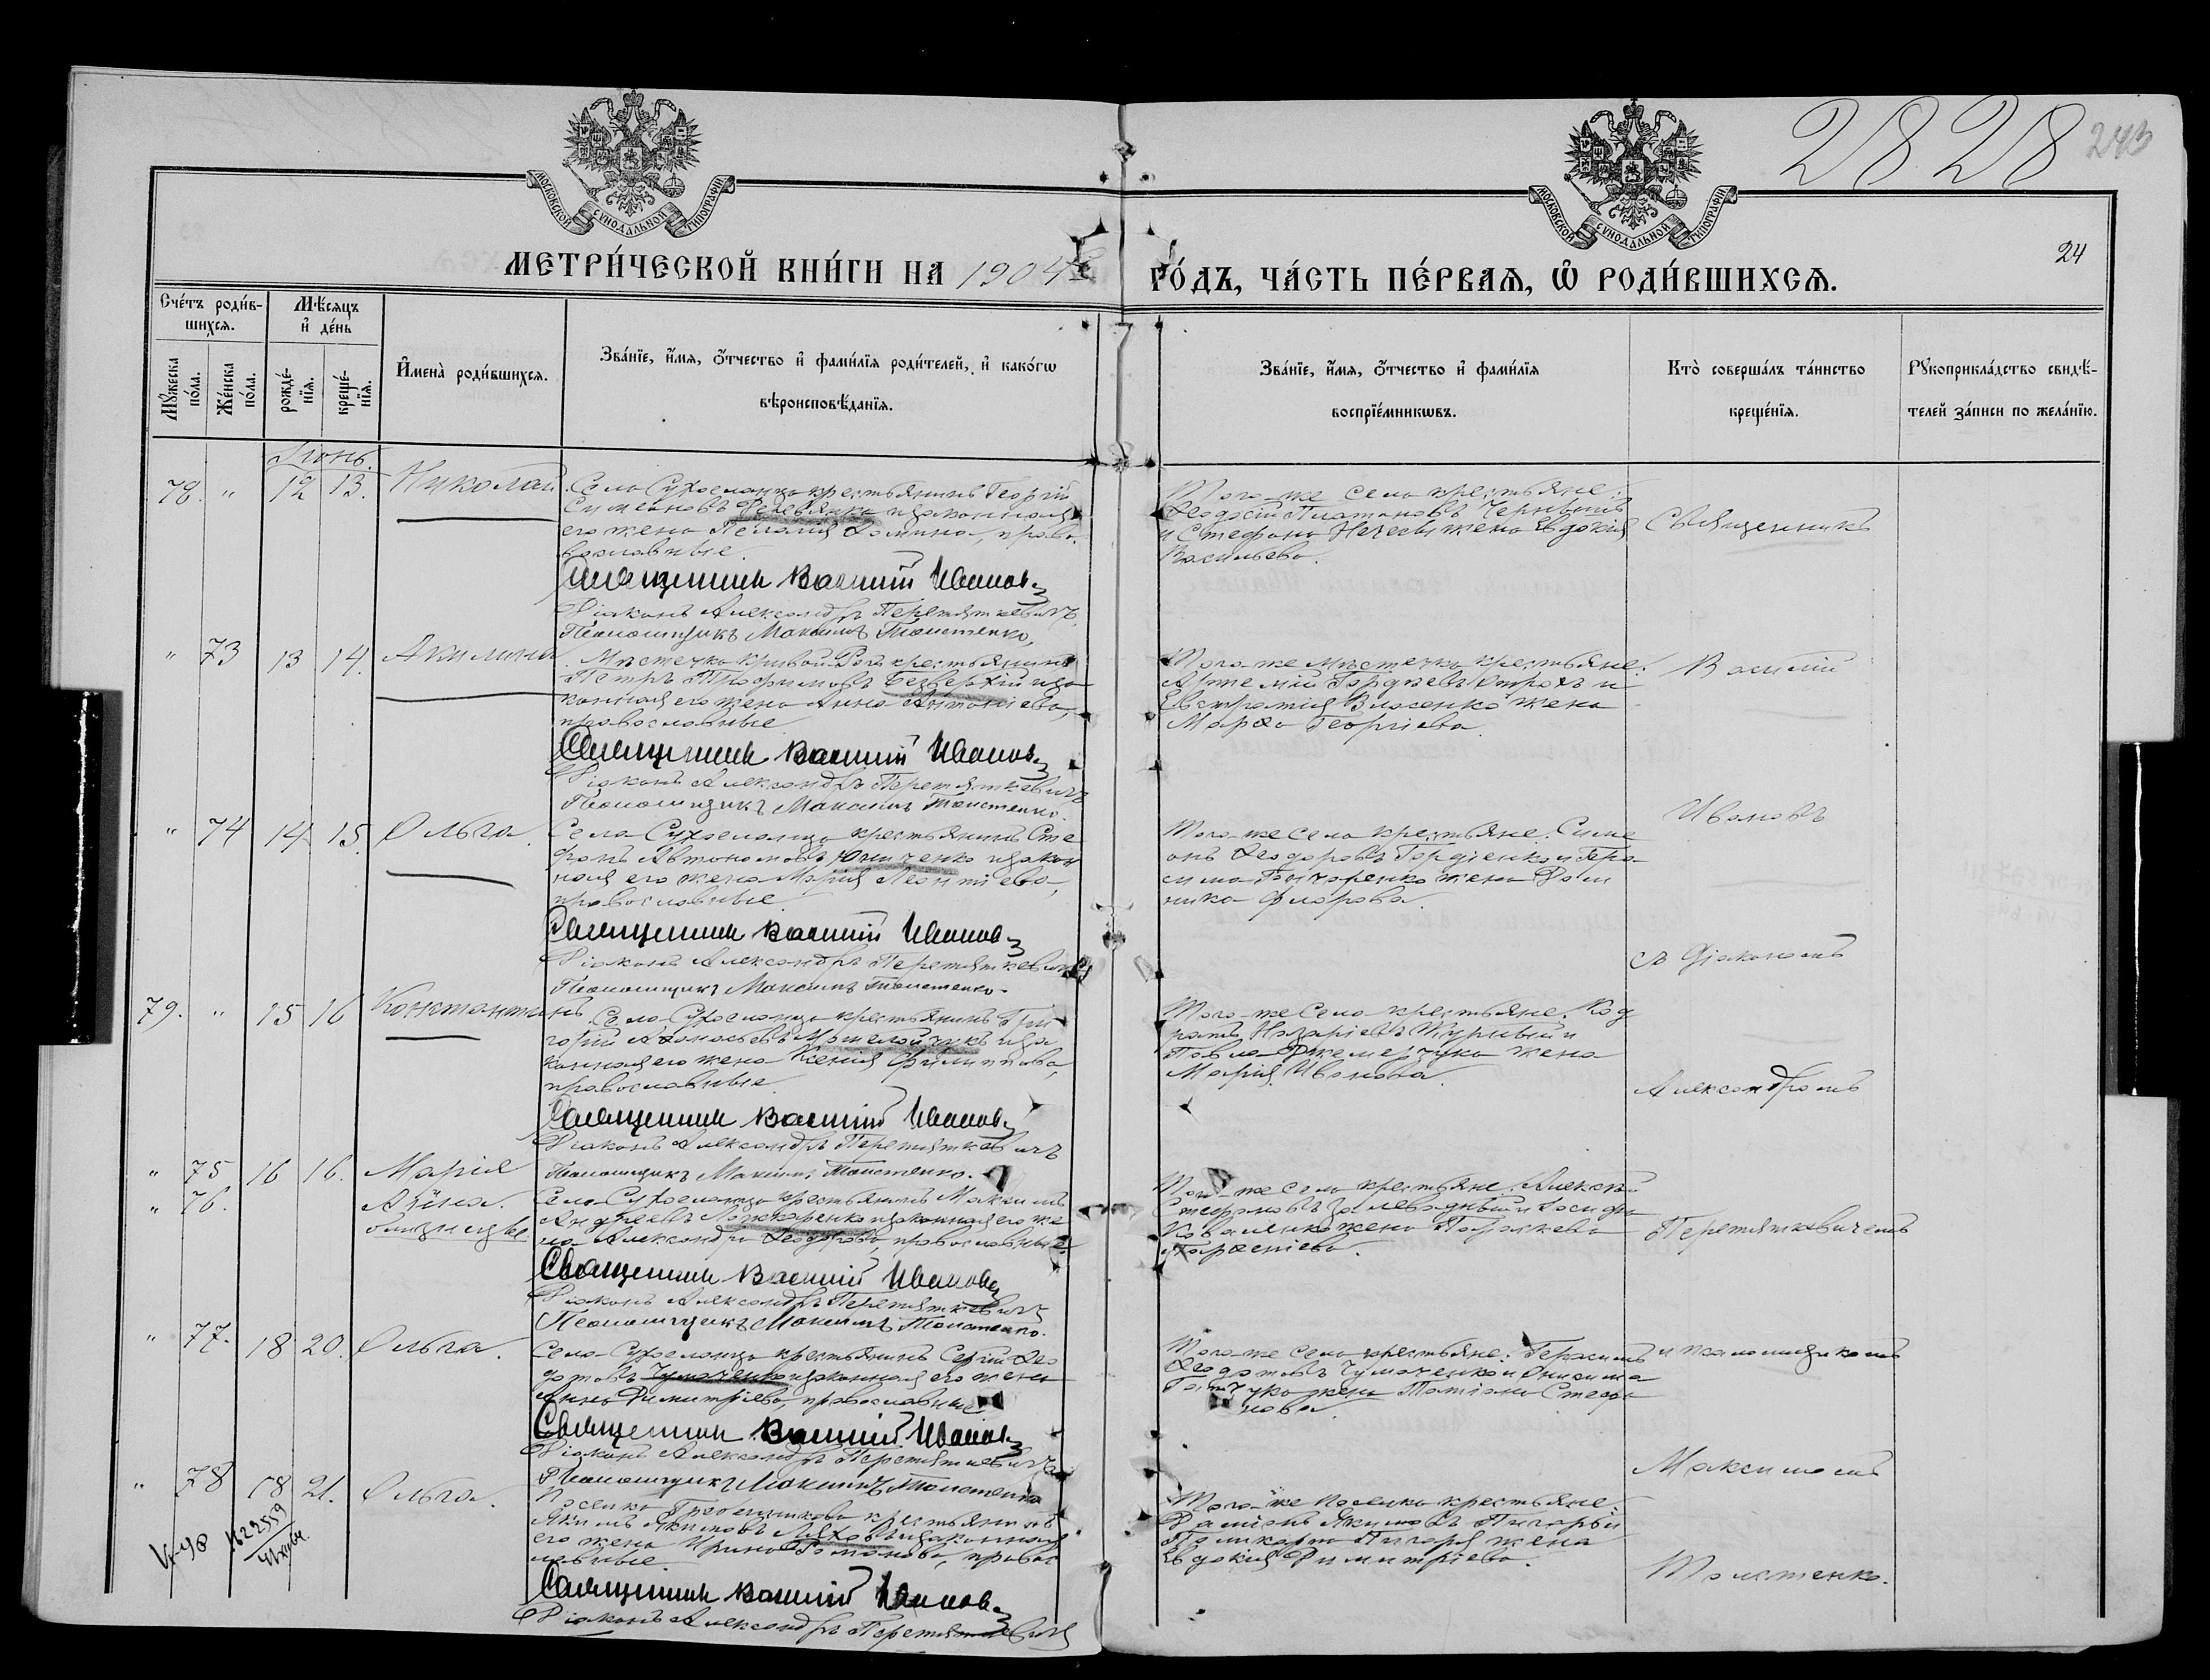 2828
243
МОСКОВСКОЙ СѴНОДАЛЬНОЙ ТИПОГРАФІИ
МОСКОВСКОЙ СѴНОДАЛЬНОЙ ТИПОГРАФІИ
24
МЕТРИ́ЧЕСКОЙ КНИ́ГИ НА 1904
ГО́ДЪ, ЧА́СТЬ ПЕ́РВАЯ, Ѡ РОДИ́ВШИХСѦ.
Сче́тъ роди́в-
шихся.
Мꙋжеска по́ла.
Же́нска по́ла.
Мѣ́сяцъ и де́нь
рожде́-нїя.
креще́-нїя.
И҆мена̀ роди́вшихся.
Зва́нїе, и҆́мя, ѻ҆́тчество и҆ фами́лїя роди́телей, и҆ како́гѡ
вѣроисповѣ́данїя.
Зва́нїе, и҆́мя, ѻ҆́тчество и҆ фами́лїя
воспрїе́мникѡвъ.
Кто̀ соверша́лъ та́инство
креще́нїя.
Рꙋкоприкла́дство свидѣ́-
телей за́писи по жела́нїю.
Іюнь.
78. " 12 13. Николай
Села Сухоеланца крестьянинъ Георгій
Симеоновъ и законная
его жена Пелагія Фомина, право-
вославные.
Священникъ Василій Ивановъ
Діаконъ Александръ Перетяткевичъ
Псаломщикъ Максимъ Толстенко.
Того-же села крестьяне:
Ѳеодосій Платоновъ
и Стефана жена Евдокія
Васильева.
Священникъ
" 73 13 14. Акилина
Мѣстечка Кривой-Рогъ крестьянинъ
Петръ Трофимовъ Безверхій и за-
конная его жена Анна Антоніева,
православные.
Священникъ Василій Ивановъ
Діаконъ Александръ Перетяткевичъ
Псаломщикъ Максимъ Толстенко.
Того-же мѣстечка крестьяне:
Артемій Гордѣевъ и
Евстратія Власенко жена
Марѳа Георгіева.
Василій
" 74 14 15. Ольга.
Села Сухоеланца крестьянинъ Сте-
фанъ Автономовъ и закон-
ная его жена Марія Леонтіева,
православные.
Священникъ Василій Ивановъ
Діаконъ Александръ Перетяткевичъ
Псаломщикъ Максимъ Толстенко.
Того-же села крестьяне: Симе-
онъ Ѳеодоровъ Гордіенко и Гера-
сима Гончаренко жена Дом-
ника Флорова.
Ивановъ
съ Діакономъ
79. " 15 16 Константинъ
Села Сухоеланца крестьянинъ Гри-
горій Аѳанасьевъ и за-
конная его жена Ксенія Филиппова,
православные.
Священникъ Василій Ивановъ
Діаконъ Александръ Перетяткевичъ
Псаломщикъ Максимъ Толстенко.
Того-же села крестьяне: Код-
ратъ Назаріевъ и
Павла жена
Марія Иванова.
Александромъ
" 75 16 16. Марія
" 76. Анна.
близнецы.
Села Сухоеланца крестьянинъ Максимъ
Андреевъ и законная его же-
на Александра Ѳеодорова, православные
Священникъ Василій Ивановъ
Діаконъ Александръ Перетяткевичъ
Псаломщикъ Максимъ Толстенко.
Того-же села крестьяне: Алексѣй
Стефановъ и Іосифа
Коваленко жена Параскева
Тарасіева.
Перетяткевичемъ
" 77. 18 20. Ольга.
Села Сухоеланца крестьянинъ Сергій Ѳео-
дотовъ Чумаченко и законная его жена
Анна Димитріева, православные
Священникъ Василій Ивановъ
Діаконъ Александръ Перетяткевичъ
Псаломщикъ Максимъ Толстенко
Того-же села крестьяне: Герасимъ
Ѳеодотовъ Чумаченко и Онисима
жена Татіана Стефа-
нова.
и псаломщикомъ
Максимомъ
" 78 18 21. Ольга.
Поселка крестьянинъ
Акимъ Акимовъ и законная
его жена Ирина Романова, правос-
лавные
Священникъ Василій Ивановъ
Діаконъ Александръ Перетяткевичъ
Того-же поселка крестьяне:
Даміанъ Акимовъ
Поликарпа жена
Евдокія Димитріева.
Толстенко.